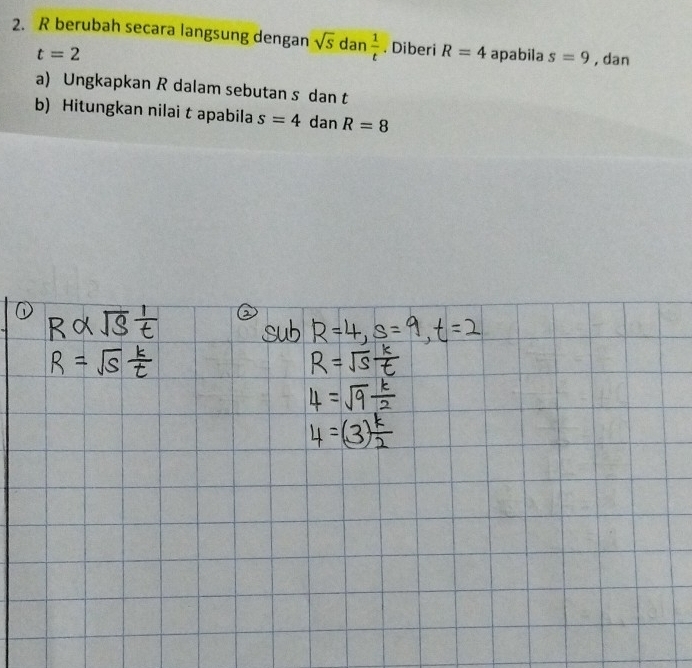 2. R berubah secara langsung dengan √s dan 1/t. Diberi R = 4 apabila s = 9, dan
t = 2
a) Ungkapkan R dalam sebutan s dan t
b) Hitungkan nilai t apabila s = 4 dan R = 8
① R α √S 1/t
R = √S k/t
② sub R=4, s=9, t=2
R = √S k/t
4 = √9 k/2
4 = (3) k/2